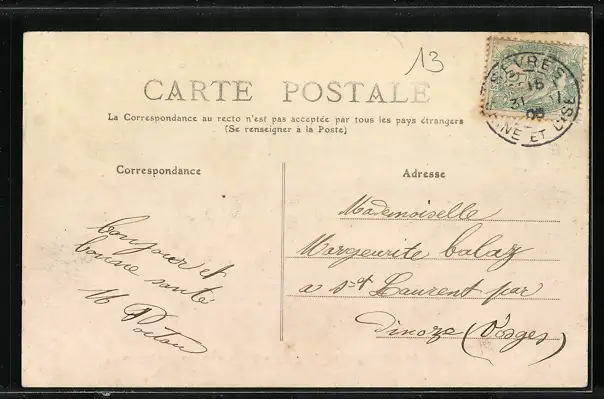 13
SÈVRES
15
31 - 1
05
SEINE ET OISE
CARTE POSTALE
La Correspondance au recto n'est pas acceptée par tous les pays étrangers
(Se renseigner à la Poste)
Correspondance
Adresse
bonjour et
bonne santé
Mademoiselle
Marguerite balaz
a St Laurent par
Dinoze (Vosges)